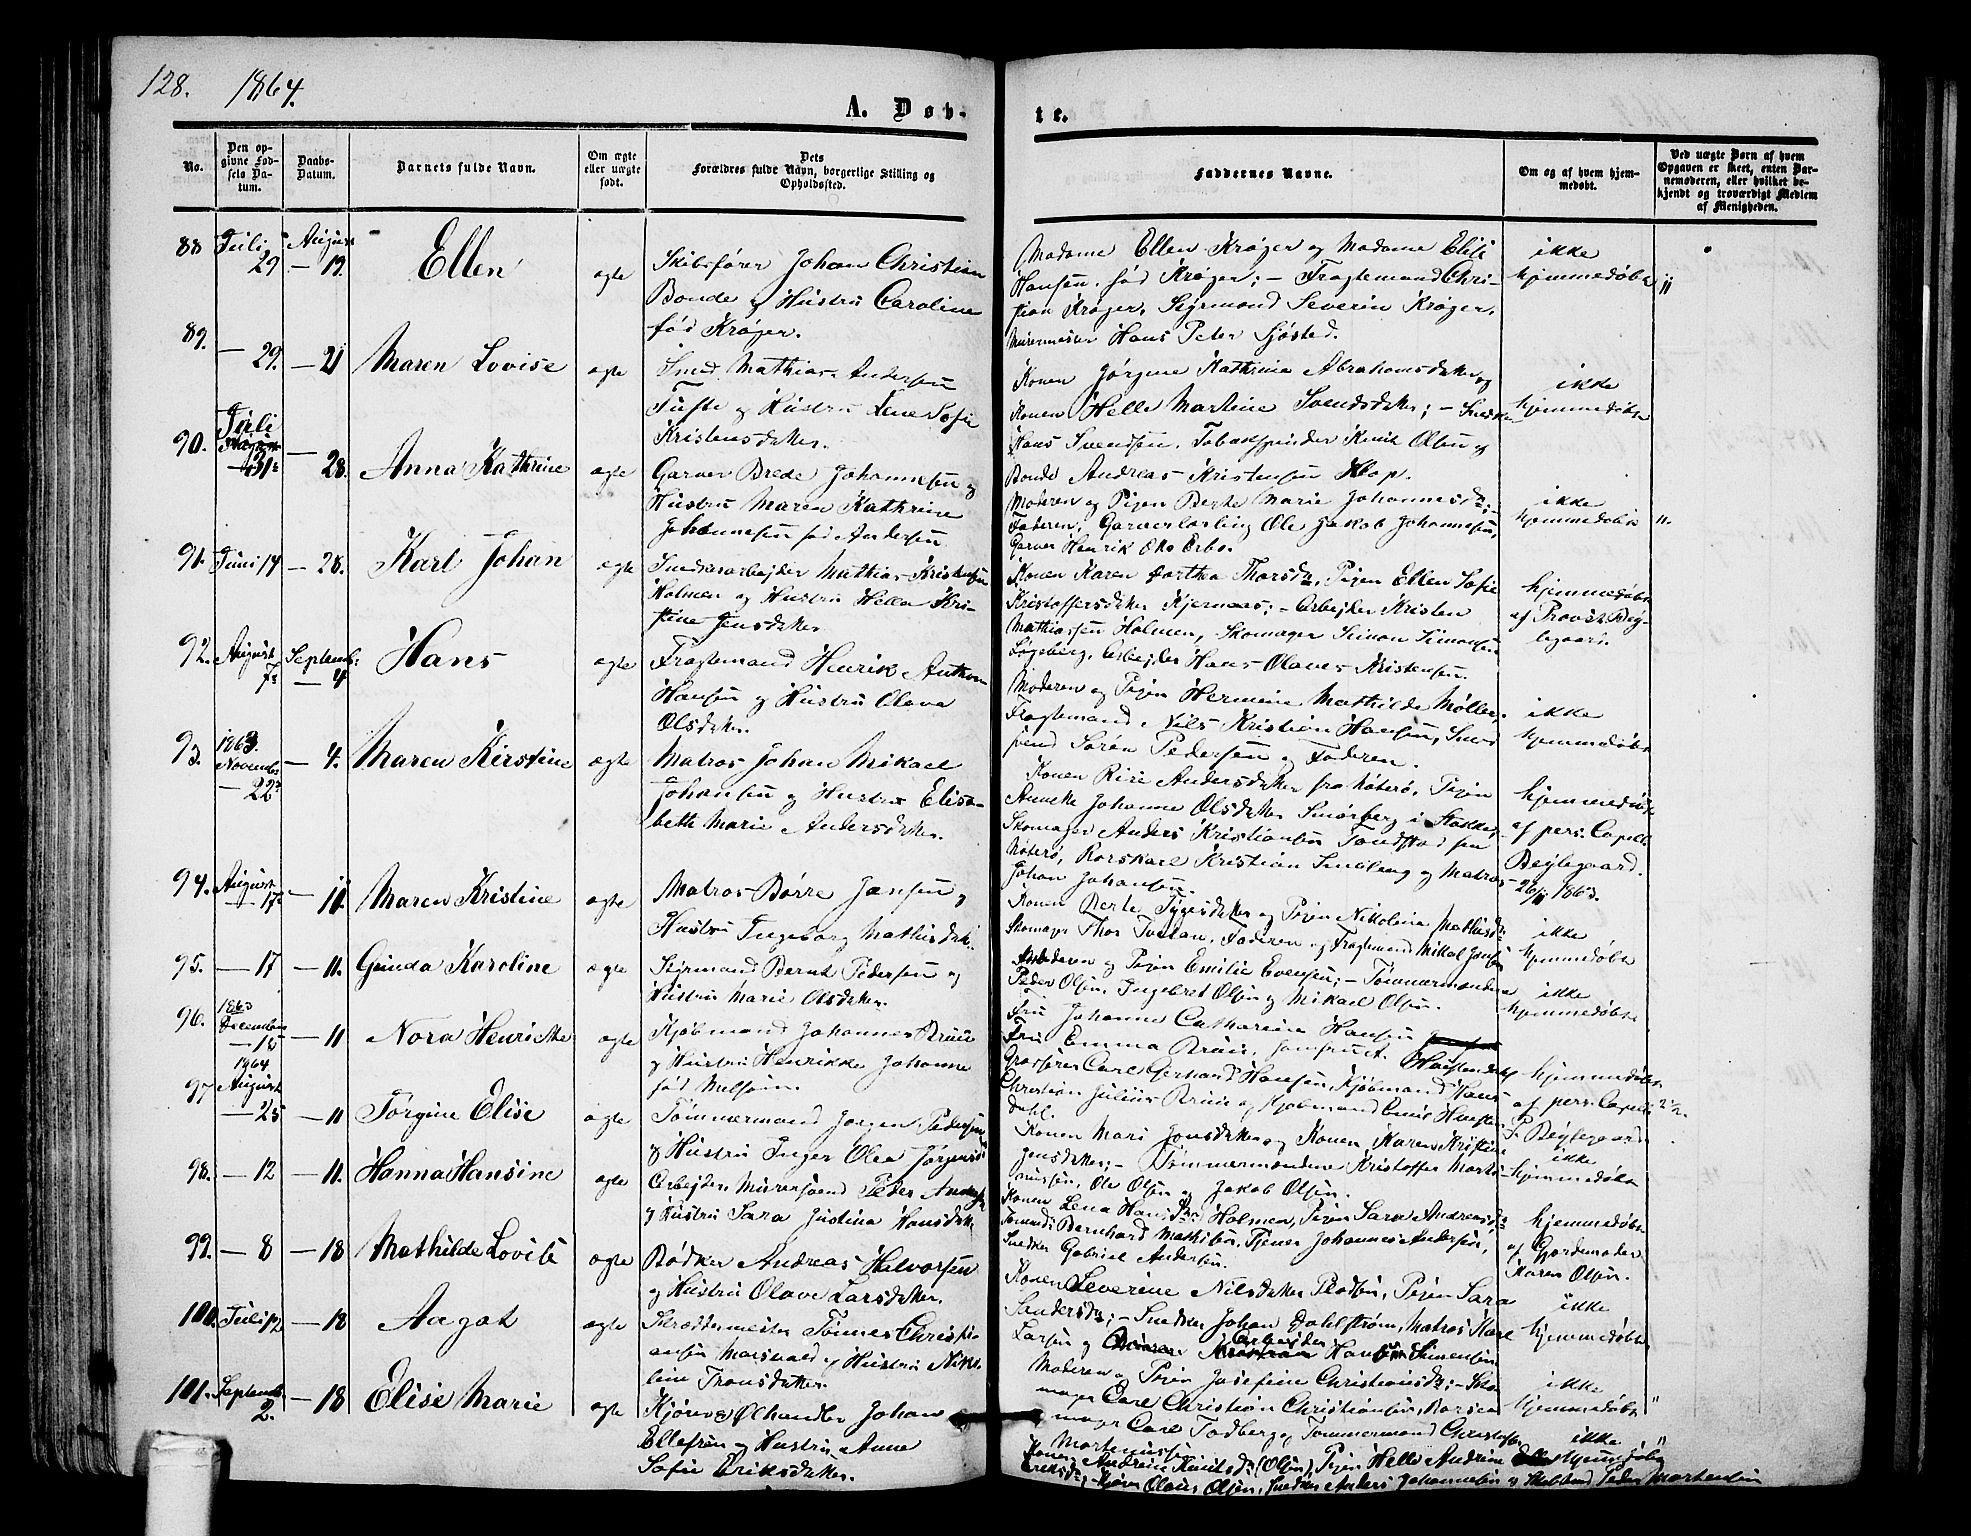 128. 1864.
A. Døb- te.
No.
Den op-
givne Fød-
sels Da-
tum.
Daabs-
Datum.
Barnets fulde Navn.
Om ægte
eller uægte
født.
Dets
Forældres fulde Navn, borgerlige Stilling og
Opholdssted.
Faddernes Navne.
Om og af hvem hjem-
medøbt.
Ved uægte Børn af hvem
Opgaven er skeet, enten Bar-
nemoderen, eller hvilket be-
kjendt og troværdigt Medlem
af Menigheden.
88 Juli 29 August — 19. Ellen ægte
Skibsfører Johan Christian
Bonde og Hustru Caroline
fød Krøger.
Madame Ellen Krøger og Madame Elise
Hansen, fød Krøger; — Fragtemand Chri-
stian Krøger, Styrmand Severin Krøger,
Murermester Hans Peter Sjøsted.
ikke
hjemmedøbt "
89. — 29. — 21 Maren Lovise ægte
Smed Mathias Andersen
Tufte og Hustru Lene Sofie
Kristensdatter.
Konen Jørgine Kathrine Abrahamsdatter og
Konen Helle Martine Svendsdatter; — Snedker
Hans Svendsen, Tobaksspinder Knut Olsen og
Bonde Andreas Kristensen Klop.
ikke
hjemmedøbt
90. Juli 31te — 28. Anna Kathrine ægte
Garver Brede Johannesen og
Hustru Maren Kathrine
Johannesen fød Andersen
Moderen og Pigen Berte Marie Johannesdtr;
Faderen, Garverlærling Ole Jakob Johannesen,
Garver Henrik Erbo.
ikke
hjemmedøbt "
91. Juni 14 — 28. Karl Johan ægte
Mathias Kristensen
Holmen og Hustru Helle Kri-
stine Jensdatter
Konen Karen Dorthea Thorsdtr, Pigen Ellen Sofie
Kristoffersdatter Kjernaas; — Arbejder Kristen
Mathiassen Holmen, Skomager Simon Simonsen
Løgeberg, Arbejder Hans Olaves Kristensen.
hjemmedøbt
af Provst Bej-
legaard.
92. August 7de Septemb: — 4 Hans ægte
Fragtemand Henrik Anthon
Hansen og Hustru Olava
Olsdatter.
Moderen og Pigen Hermine Mathilde Møller,
Fragtemand Nils Kristian Hansen, Smed-
svend Søren Pedersen og Faderen.
ikke
hjemmedøbt
93. 1863. Novembr — 22de — 4. Maren Kirstine ægte
Matros Johan Mikael
Johansen og Hustru Elisa-
beth Marie Andersdatter.
Konen Siri Andersdatter fra Nøterø, Pigen
Anneke Johanne Olsdatter Smørberg i Stokke,
Skomager Anders Kristiansen
Nøterø, Rorskarl Kristian og Matros
Johan Johansen.
hjemmedøbt
af pers. Capell.
Bejlegaard.
1863.
94. August — 17. — 11. Maren Kristine ægte
Matros Børre Jansen og
Hustru Ingeborg Mathisdatter
Konen Berte Tygesdatter og Pigen Nikoline Mathisd:
Skomager Thor Tostan, Faderen og Fragtemand Mikal Jensen
ikke
hjemmedøbt
95. — 17 — 11. Gunda Karoline ægte
Styrmand Bernt Pedersen og
Hustru Marie Olsdatter.
Moderen og Pigen Emilie Evensen; — Tømmermændene
Peder Olsen, Ingebret Olsen og Mikael Olsen.
ikke
hjemmedøbt
96. 1863 December — 15 — 11 Nora Henriette ægte
Kjøbmand Johannes Bruu
og Hustru Henrikke Johanne
fød Melsom.
Fru Johanne Catharina Hansen
Fru Emma Bruu, Jomfru
Grosserer Carl Gerhard Hansen, Kjøbmand Hans
Christian Julius Bruu og Kjøbmand Emil Hansten-
dahl.
hjemmedøbt
af pers. Capell.
F. Bejlegaard
97 1864 August — 25 — 11 Jørgine Elise ægte
Tømmermand Jørgen Pedersen
og Hustru Inger Olea Jørgensd
Konen Mari Jonsdatter og Konen Karen Kristine
Jensdatter; — Tømmermændene Kristoffer Marti-
niussen, Ole Olsen og Jakob Olsen.
ikke
hjemmedøbt
98. — 12 — 11. Hanna Hansine ægte
Arbejder, Murersvend Peder Anders
og Hustru Sara Justina Hansdatter
Konen Lena Hansdtr Holmen, Pigen Sara Andreasd:
Bernhard Mathisen, Tjener Johannes Andersen,
Snedker Gabriel Andersen.
hjemmedøbt
af Gjordemoder
Karen Olsen.
99. — 8 — 18 Mathilde Lovise ægte
Bødker Andreas Halvorsen
og Hustru Olave Larsdatter.
Konen Severine Nilsdatter, Pigen Sara
Sandersdtr; — Snedker Johan Dahlstrøm, Matros Karl
Larsen og Arbejder Hans Simensen
ikke
hjemmedøbt
100. Juli 12 — 18 Aagot ægte
Skræddermester Tønnes Christi-
ansen Marsvald og Hustru Niko-
line Tronsdatter.
Moderen og Pigen Josefine Christiansdtr; — Sko-
mager Carl Christian Christiansen,
Carl Fodberg, Tømmermand Christoffer
Martinussen
ikke
hjemmedøbt "
101. Septemb: 2. — 18 Elise Marie ægte
Kjører Ølhandler Johan
Ellefsen og Hustru Anne
Sofie Eriksdatter.
Konen Andrine Knutsdtr (Olsen), Pigen Helle Andrine
Eriksdtr; — Kjører Olaus Olsen, Snedker Anders Johannesen og Peder Martensen
ikke
hjemmedøbt "